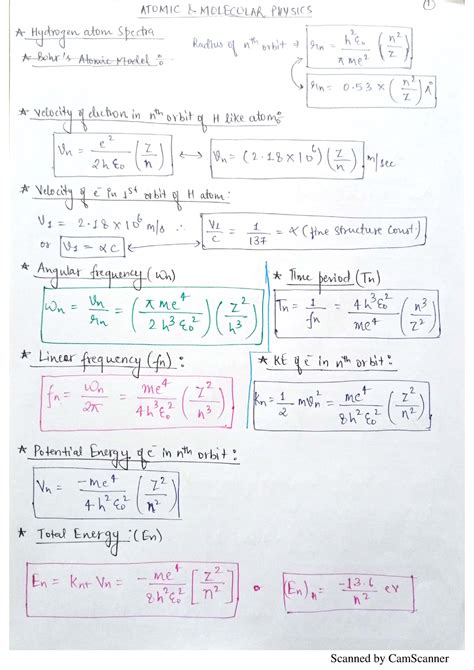 ATOMIC & MOLECULAR PHYSICS ①
* Hydrogen atom Spectra
* Bohr's Atomic Model :
Radius of nth orbit → rn = h²ε₀ / πme² (n²/Z)
rn = 0.53 × (n²/Z) Å
* Velocity of electron in nth orbit of H like atom :
Vn = e²/2hε₀ (Z/n) ↔ Vn = (2.18×10⁶) (Z/n) m/sec
* Velocity of e⁻ in 1st orbit of H atom :
V₁ = 2.18 × 10⁶ m/s ∴ V₁/c = 1/137 = α (fine structure const.)
or V₁ = αc
* Angular frequency (ωn)
ωn = Vn/rn = (πme⁴/2h³ε₀²) (Z²/h³)
* Time period (Tn)
Tn = 1/fn = 4h³ε₀²/me⁴ (n³/Z²)
* Linear frequency (fn) :
fn = ωn/2π = me⁴/4h³ε₀² (Z²/n³)
* KE of e⁻ in nth orbit :
Kn = 1/2 mvn² = me⁴/8h²ε₀² (Z²/n²)
* Potential Energy of e⁻ in nth orbit :
Vn = -me⁴/4h²ε₀² (Z²/n²)
* Total Energy : (En)
En = Kn + Vn = -me⁴/8h²ε₀² [Z²/n²] or (En)H = -13.6/n² eV
Scanned by CamScanner